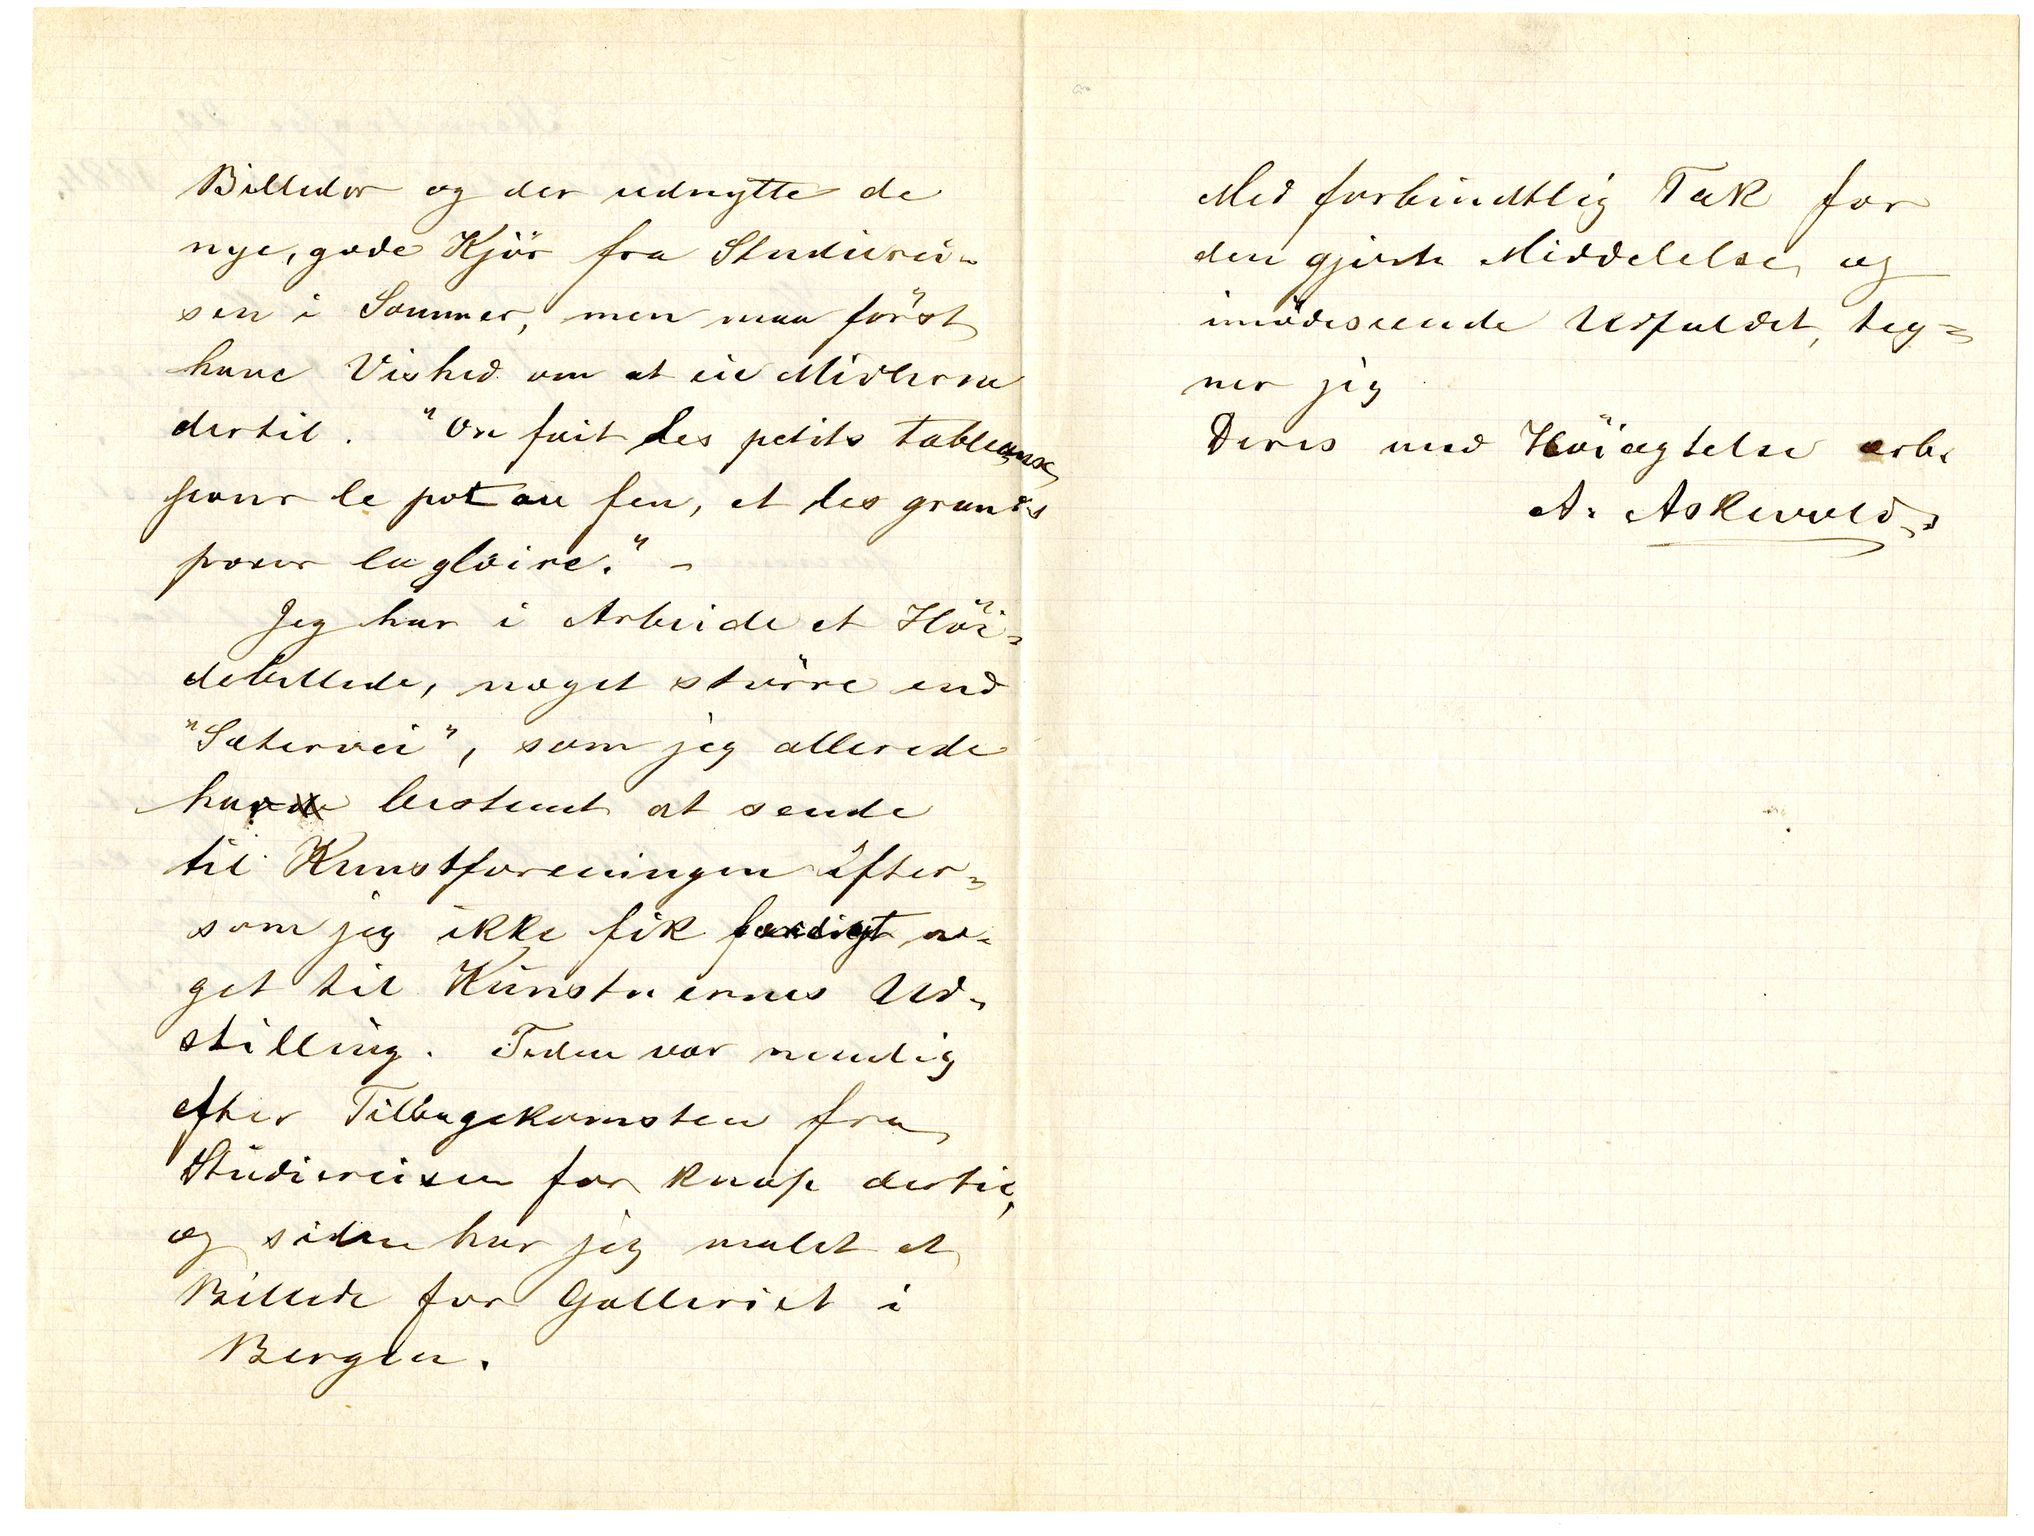 Billeder og der udnytte de
nye, gode Kjör fra Studierei-
sen i Sommer, men maa först
have Vished om at eie Midlerne
dertil. "On fait les petits tableaux
pour le pot au feu, et les grands
pour la gloire." -
Jeg har i Arbeide et Höi-
debillede, noget större end
"Sætervei", som jeg allerede
har bestemt at sende
til Kunstforeningen efter-
som jeg ikke fik færdigt no-
get til Kunstnernes Ud-
stilling. Tiden var nemlig
efter Tilbagekomsten fra
Studiereisen for knap dertil,
og siden har jeg malet et
Billede for Galleriet i
Bergen.
Med forbindtlig Tak for
den gjorte Meddelelse og
imödeseende Udfaldet, teg-
ner jeg
Deres med Höiagtelse ærb.
A. Askevold.